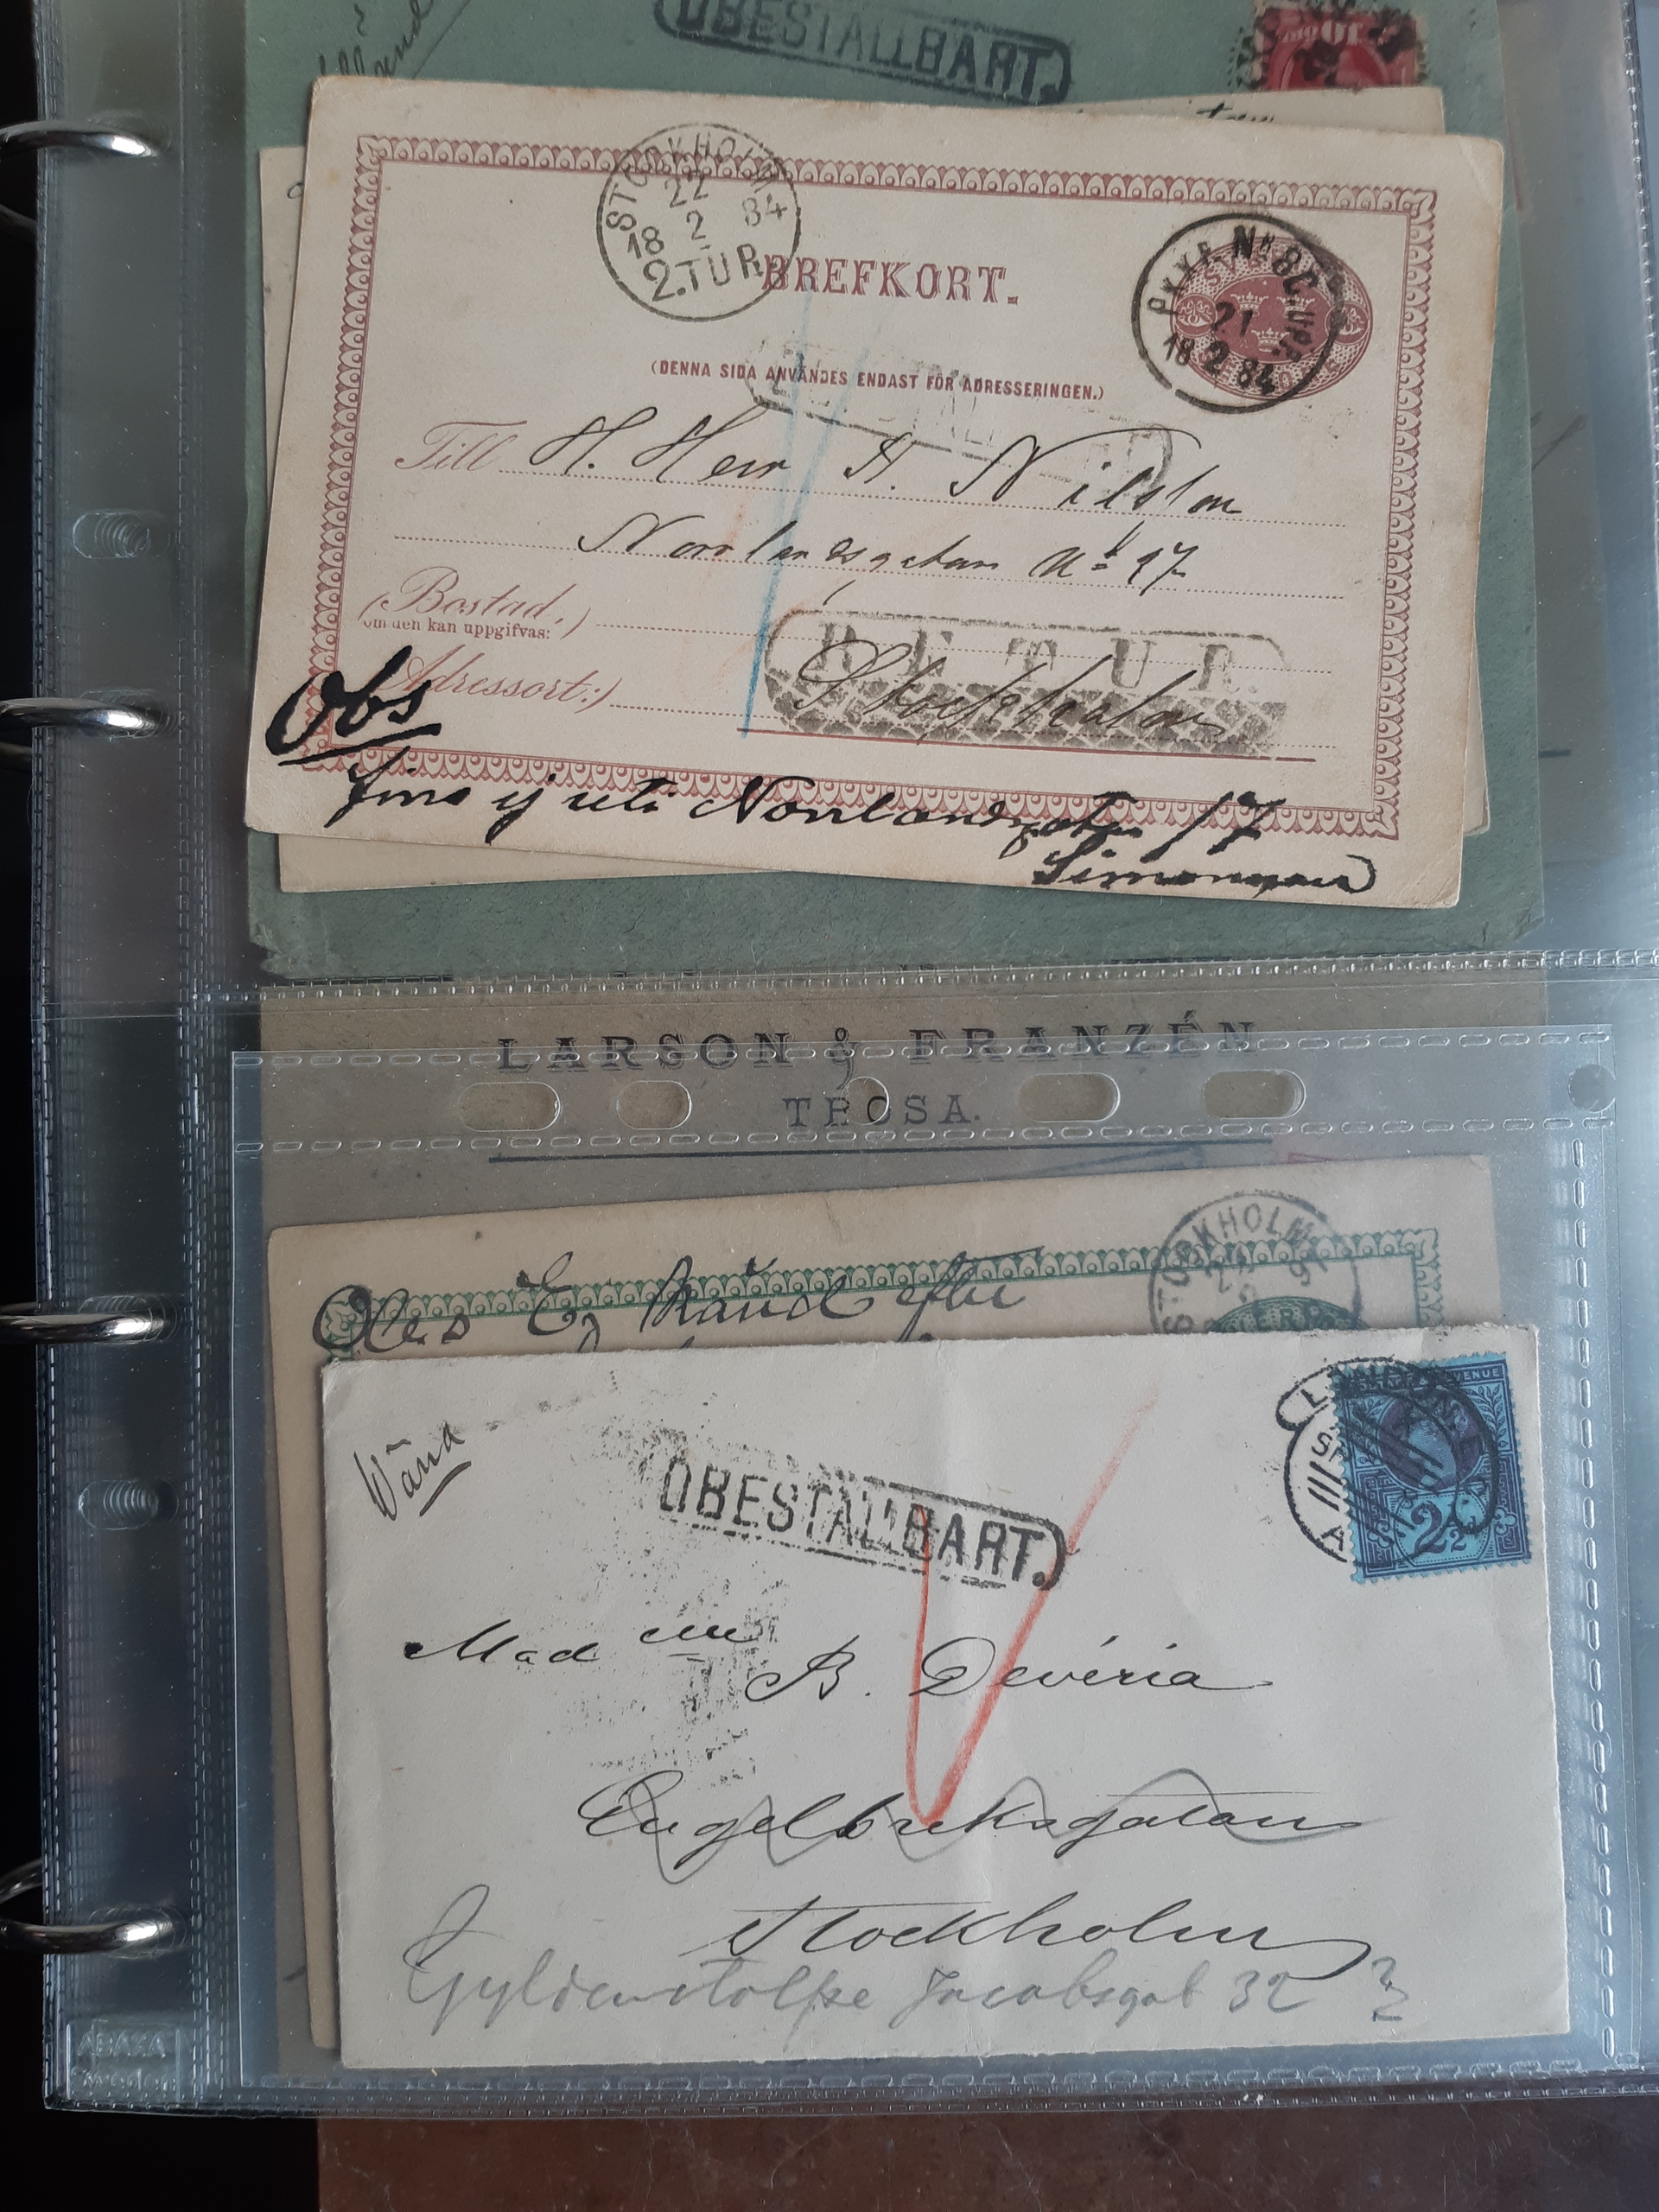 OBESTÄLLBART.
STOCKHOLM
22
18 2 84
2.TUR
BREFKORT.
PKXP Nr 8C UPP
21
18 2 84
(DENNA SIDA ANVÄNDES ENDAST FÖR ADRESSERINGEN.)
Till H. Herr A. Nilsson
Norrlandsgatan No 27
(Bostad,)
om den kan uppgifvas:
RETUR.
Adressort:)
Stockholm
Obs
finns ej uti Norrlandsgatan 17
LARSON & FRANZÉN
TROSA.
STOCKHOLM
efter
LONDON
2½
Vänd
OBESTÄLLBART.
Madme B. Devéria
Engelbrektsgatan
Stockholm
Gyldenstolpe Jacobsgat 32 ?
ABAXA